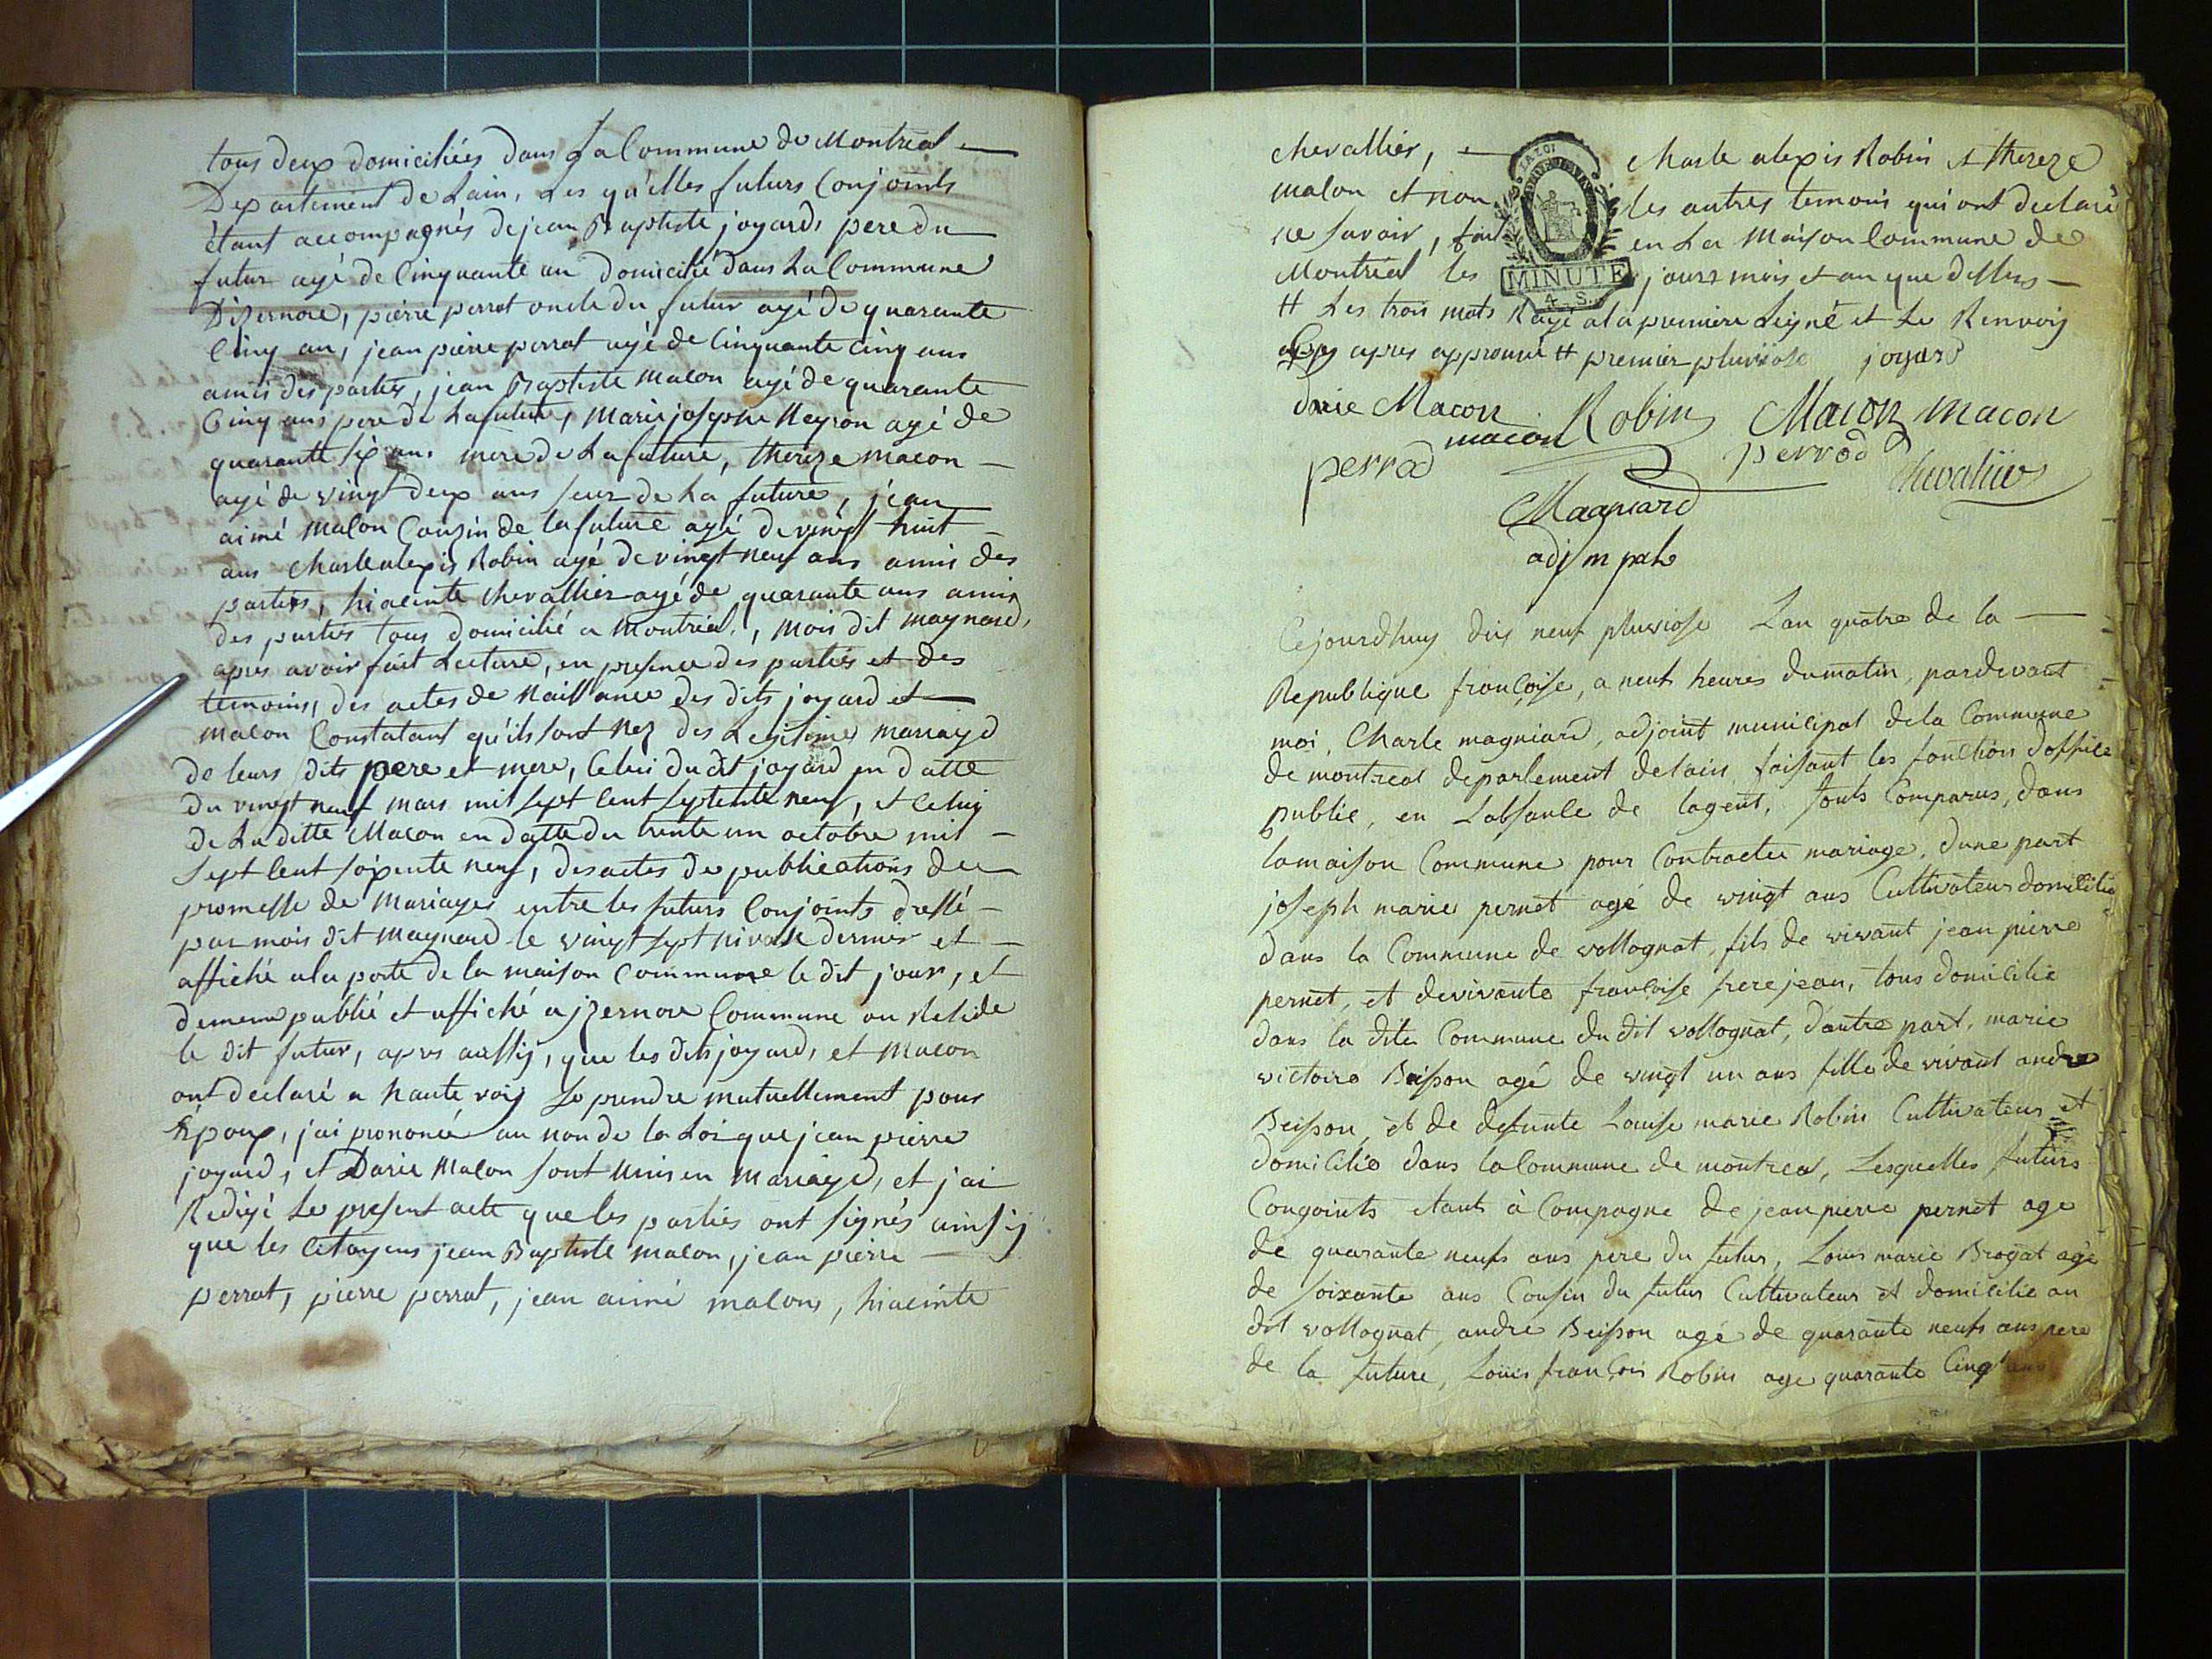 tous deux domiciliés dans la Commune de Montréal —
Departement de Lain, Les qu'elles futurs Conjoints
étant accompagnés de jean Baptiste joyard, pere du —
futur agé de Cinquante un domicilié dans La Commune
Dizernore, pierre perrat oncle du futur agé de quarante
Cinq ans, jean pierre perrat agé de Cinquante Cinq ans
amis des parties, jean Baptiste Macon agé de quarante
Cinq ans pere de La future, Marie josepte Neyron agé de
quarante six ans mere de La future, thereze macon —
agé de vingt deux ans seur de La future, jean
aimé Macon Couzin de la future agé de vingt huit —
ans Charle alexis Robin agé de vingt neuf ans amis des
parties, hiacinte Chevallier agé de quarante ans amis
des parties tous domicilié a Montréal, mois dit magnard,
après avoir fait Lecture, en presence des parties et des
temoins, des actes de Naissance des dits joyard et —
Macon Constatant qu'ils sont Nez des Legitime mariage
de leurs dits pere et mere, Celui du dit joyard en datte
du vingt neuf mars mil sept Cent septente neuf, et Celuy
de La ditte Macon en datte du trente un octobre mil —
Sept Cent soixente neuf, des actes de publications de —
promesse de Mariages entre les futurs Conjoints dressé —
par mois dit Magnard le vingt sept nivose dernier et —
affiché a la porte de la maison Commune le dit jour, et
de meme publié et affiché a jzernore Commune ou Reside
le dit futur, apres aussy, que les dits joyard, et Macon
ont declaré a haute voix Se prendre mutuellement pour
Epoux, j'ai prononcé au non de la Loi que jean pierre
joyard, et Darie Macon sont Unis en Mariage, et j'ai
Redigé Le present acte que les parties ont signés ainsy
que les Citoyens jean Baptiste Macon, jean pierre —
perrat, pierre perrat, jean aimé macon, hiacinte
Chevallier, — Charle alexis Robin et thereze
Macon et non les autres temoins qui ont declaré
ne savoir, fait en La Maison Commune de
Montréal les jours mois et an que dessus —
MINUTE
4. S.
# Les trois mots Rayé a la premiere Ligne et Le Renvoij
apres approuvé # premier pluviose joyard
darie Macon Robin Macon macon
macon perrod
perra Chevallier
Magniard
adj m pal
Cejourdhuy dix neuf pluviose Lan quatre de la —
Republique françoise, a neuf heures dumatin, pardevant
moi, Charle magniard, adjoint municipal dela Commune
de montreal departement delain faisant les fonction d'office
public, en Labsance de lagent, sonts Comparus, dans
lamaison Commune pour Contracter mariage, dune part
joseph marie pernet agé de vingt ans Cultivateur domicilié
dans la Commune de vollognat, fils de vivant jean pierre
pernet, et devivante françoise frere jean, tous domicilié
dans la dite Commune du dit vollognat, d'autre part, marie
victoire Beisson agé de vingt un ans fille de vivant andre
Beisson, et de defunte Louise marie Robin Cultivateur et
domicilié dans la Commune de montreal, Lesquelles futurs
Congoints etants à Compagne de jean pierre pernet age
de quarante neufs ans pere du futur, Louis marie Brogat agé
de soixante ans Cousin du futur Cultivateur et domicilié au
dit vollognat, andré Beisson agé de quarante neufs ans pere
de la future, Loüis françois Robin age quarante Cinq ans